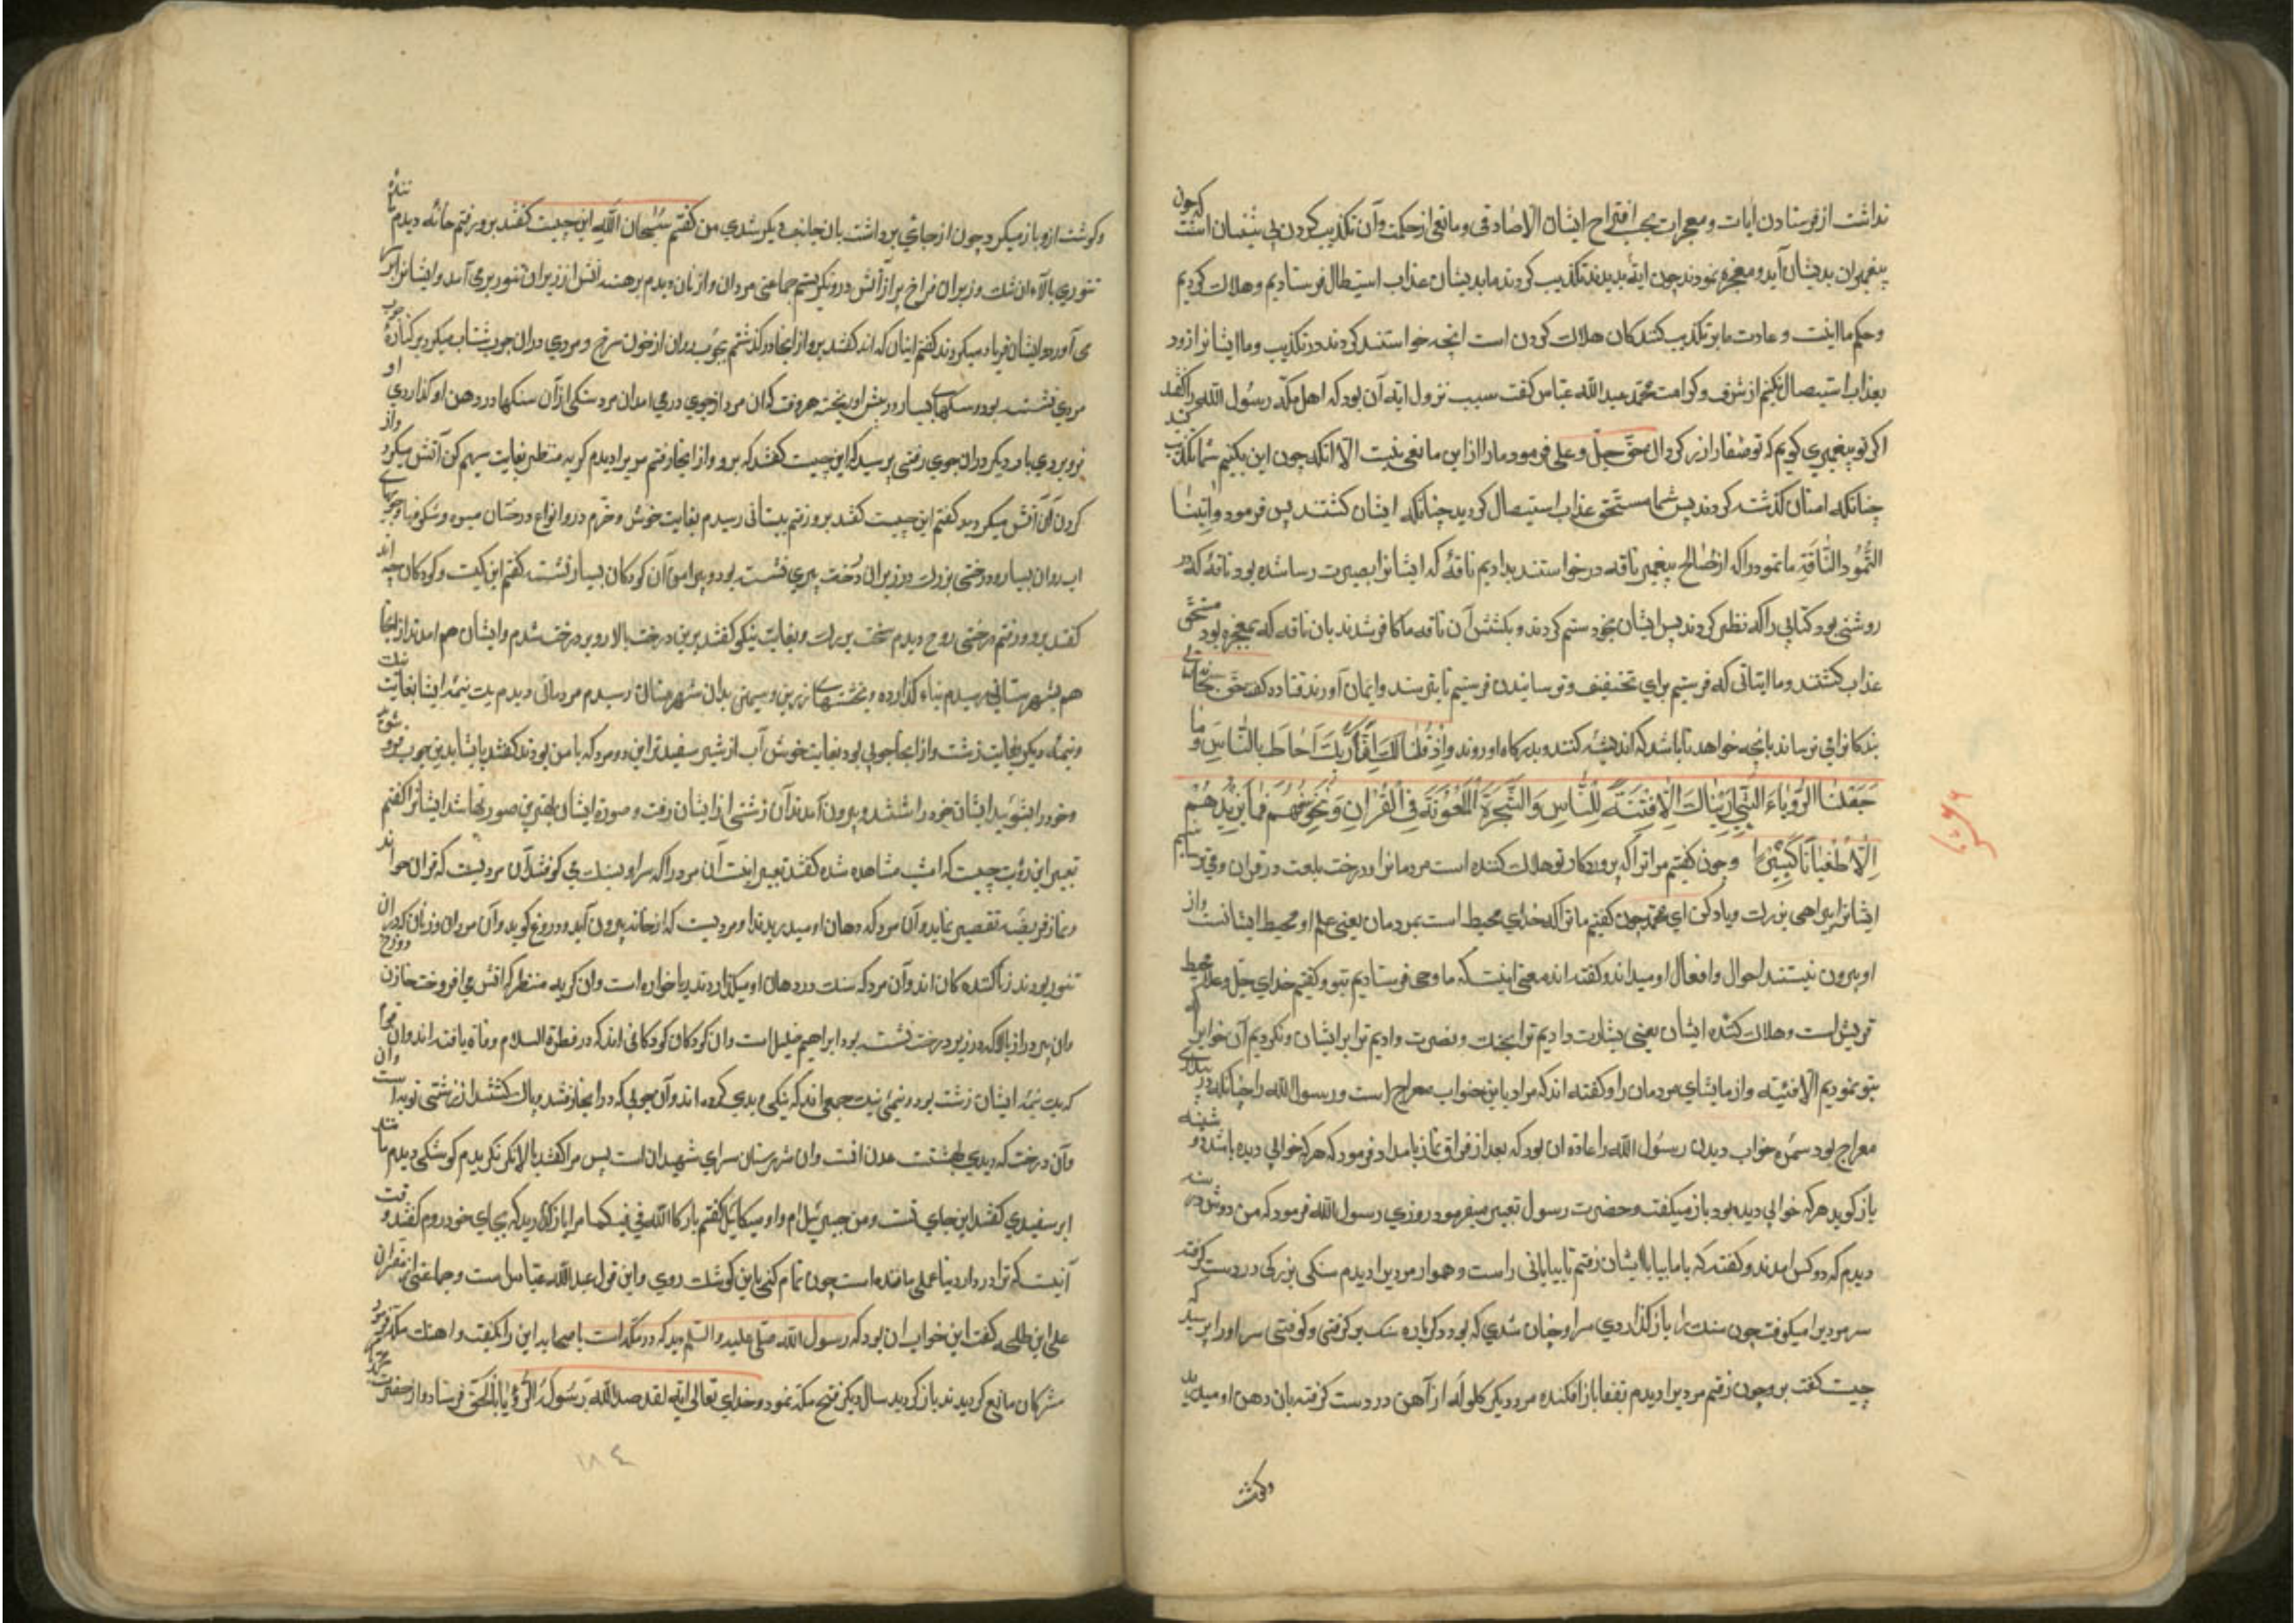 نداشت از فرستادن ایات و معجزات بحسب اقتراح ایشان الا صادقی و مانعی از حکمت و آن تکذیب کردن پیشینیان است که چون
پیغمبران بدیشان آید و معجزه نمودند چون ایة بدیدند تکذیب کردند ما بدیشان عذاب استیصال فرستادیم و هلاک کردیم
و حکم ما اینست و عادت ما بر تکذیب کنندکان هلاک کردن است انچه خواستند کردند در تکذیب و ما ایشانرا زود
بعذاب استیصال نکنیم از شرف و کرامت محمد عبد الله عباس کفت سبب نزول ایه آن بود که اهل مکه رسول الله را کفتند
اکر تو پیغمبری کویم که تو صفا را زر کردان حق جل و علی فرمود مارا از این مانعی نیست الا انکه چون این بکنیم شما تکذیب کنید
چنانکه امتان کذشته کردند پس شما مستحق عذاب استیصال کردید چنانکه ایشان کشتند پس فرمود واتینا
الثمود الناقة ما ثمود را که از صالح پیغمبر ناقه درخواستند بدادیم ناقهٔ که ایشانرا بصیرت رسا شده بود ناقهٔ که در
روشنی بود کتابی را که نظر کردند پس ایشان بخود ستم کردند و بکشتن آن ناقه ما کافر شدند بان ناقه که معجزه بود مستحق
عذاب کشتند و ما ایتاتی که فرستیم برای تخفیف و ترسانیدن فرستیم تا بترسند و ایمان آورند قتاده کفت حق تعالی
بندکانرا می ترساند بانچه خواهد تا باشد که اندیشه کنند و بدرکاه او روند واذ قلنا لک ان ربک احاط بالناس وما
جعلنا الرؤیاء التی اریناک الا فتنة للناس والشجرة الملعونة فی القران ونخوفهم فما یزیدهم
الا طغیانا کبیرا و چون کفتیم مر ترا که پروردکار تو هلاک کننده است مردمانرا و درخت بلعنت در قران و می ترسانیم
ایشانرا براهی بزرک و یاد کن ای محمد چون کفتیم ما ترا که خدای محیط است بمردمان یعنی علم او محیط ایشانست و از
او بیرون نیستند احوال و افعال او میداند و کفته اند معنی اینست که ما وحی فرستادیم بتو و کفتیم خدای جل و علا محیط
قریش است و هلاک کننده ایشان یعنی بشارت دادیم ترا و نصرت دادیم ترا بر ایشان و نکردیم آن خوابرا که
بتو نمودیم الا فتنه و ازمایشای مردمان را و کفته اند که مراد باین خواب معراج است و رسول الله را چنانکه در بیداری
معراج بود خواب دیدن رسول الله را عادة ان بود که بعد از فراق نماز بامداد فرمود که هر که خوابی دیده باشد
باز کوید هر که خوابی دیده بود باز میکفت و حضرت رسول تعبیر میفرمود روزی رسول الله فرمود که من دوش در
دیدم که دو کس امدند و کفتند که با ما بیا با ایشان رفتم تا بیابانی راست و هموار مردیرا دیدم سنکی بزرکی در دست کرفته
سر مردیرا میکوفت چون سنک را باز کذاردی سر او چنان شدی که بود دکرباره سنک برکرفتی و کوفتی سر او را پرسیدم که
چیست کفت برو چون رفتم مردیرا دیدم بقفا باز افکنده مرد دیکر کلوله از آهن در دست کرفته بان دهن او میدرید
وکوشت
وکوشت ازو باز میکرد چون از جای برداشت بان جانب دیکر شدی من کفتم سبحان الله این چیست کفتند برو رفتم خانه دیدم
تنوری بالآء ان تنک و زیر ان فراخ پر از آتش در ونکریستم جماعتی مردان و زنان دیدم برهنه اتش از زیر ان تنور برمی آمد و ایشانرا بر
می آورد و ایشان فریاد میکردند کفتم اینان که اند کفتند برو از انجا درکذشتم بجوی روان از خون سرخ و مردی در ان جوی شتاب میکرد بر کنارهٔ
مردی نشسته بود و سنکهای بسیار در پیش او ریخته هر وقت که ان مرد از جوی درمی امدی ان مرد سنکی از آن سنکها در دهن او کذاردی
فرو بردی بار دیکر در ان جوی رفتی پرسید که این چیست کفتند که برو و از انجا رفتم مردیرا دیدم کریه منظر بغایت سهمکن آتش میکرد
کردن آن آتش میکردید کفتم این چیست کفتند برو رفتم ببستانی رسیدم بغایت خوش و خرم در و انواع درختان میوه و شکوفها و جویها
اب روان بسیار و درختی بزرک و در زیر ان درخت پیری نشسته بود و پیرامن آن کودکان بسیار نشسته کفتم این کیست و کودکان چه اند
کفتند برو رفتم درختی دیدم سخت بزرک و بغایت نیکو کفتند برین درخت بالا رو بر درخت شدم و ایشان هم امدند از انجا
هم بشهرستانی رسیدم بناء کذارده و خشتهای زرین و سیمین بدان شهرستان رسیدم مردمانی دیدم یک نیمه ایشا بغایت نیک
و نیمه دیکر بغایت زشت و از انجا جویی بود بغایت خوش آب از شیر سفیدتر این دو مرد که با من بودند کفتند با ایشا بدین جوی فرو شوید
و خود را بشوئید ایشان خود را شستند و بیرون آمدند آن زشتی از ایشان رفت و صورة ایشان بهترین صورتها شد ایشانرا کفتم
تعبیر این رؤیت چیست که امشب مشاهده شده کفتند تعبیر اینست آن مرد را که سر او بسنک می کوفتند آن مردیست که قران خواند
و نماز فریضه تقصیر نماید و آن مرد که دهان او میدریدند او مردیست که از خانه بیرون آید و دروغ کوید و آن مردان و زنان که در ان
تنور بودند زنا کننده کان اند و آن مرد که سنک در دهان او میکذاردند ربا خواره است و ان کریه منظر که اتش می افروخت خازن دوزخ
و ان پیر در ان بالا که در زیر درخت نشسته بود ابراهیم خلیل است و ان کودکان کودکانی اند که در فطرة السلام وفاة یافته اند و ان
که یک نیمه ایشان زشت بود و نیمی نیک جمعی اند که نیکی و بدی کرده اند و آن جوی که در انجا رفتند و پاک کشتند از زشتی توبه است
و آن درخت که دیدی بهشت عدن است و ان شهرستان سرای شهیدان است پس مرا کفتند بالا نکر نکریدم کوشکی دیدم مانند
ابر سفیدی کفتند این جای تست و من جبرئیل ام و او میکائیل کفتم بارک الله فیکما مرا باز کذارید که بجای خود روم کفتند وقت
آنیست که ترا در دار دنیا عملی مانده است چون تمام کنی باین کوشک روی و این قول عبد الله عباس است و جماعتی مفسران
علی ابن طلحه کفت این خواب ان بود که رسول الله صلی علیه و السلم دید که در مکه است با صحابه این را بکفت و اهنک مکه فرمود
مشرکان مانع کردیدند باز کردید سال دیکر فتح مکه نمود و خدای تعالی ایه لقد صدق الله رسوله الرؤیا بالحق فرستاد و از حضرت
۱۸٤